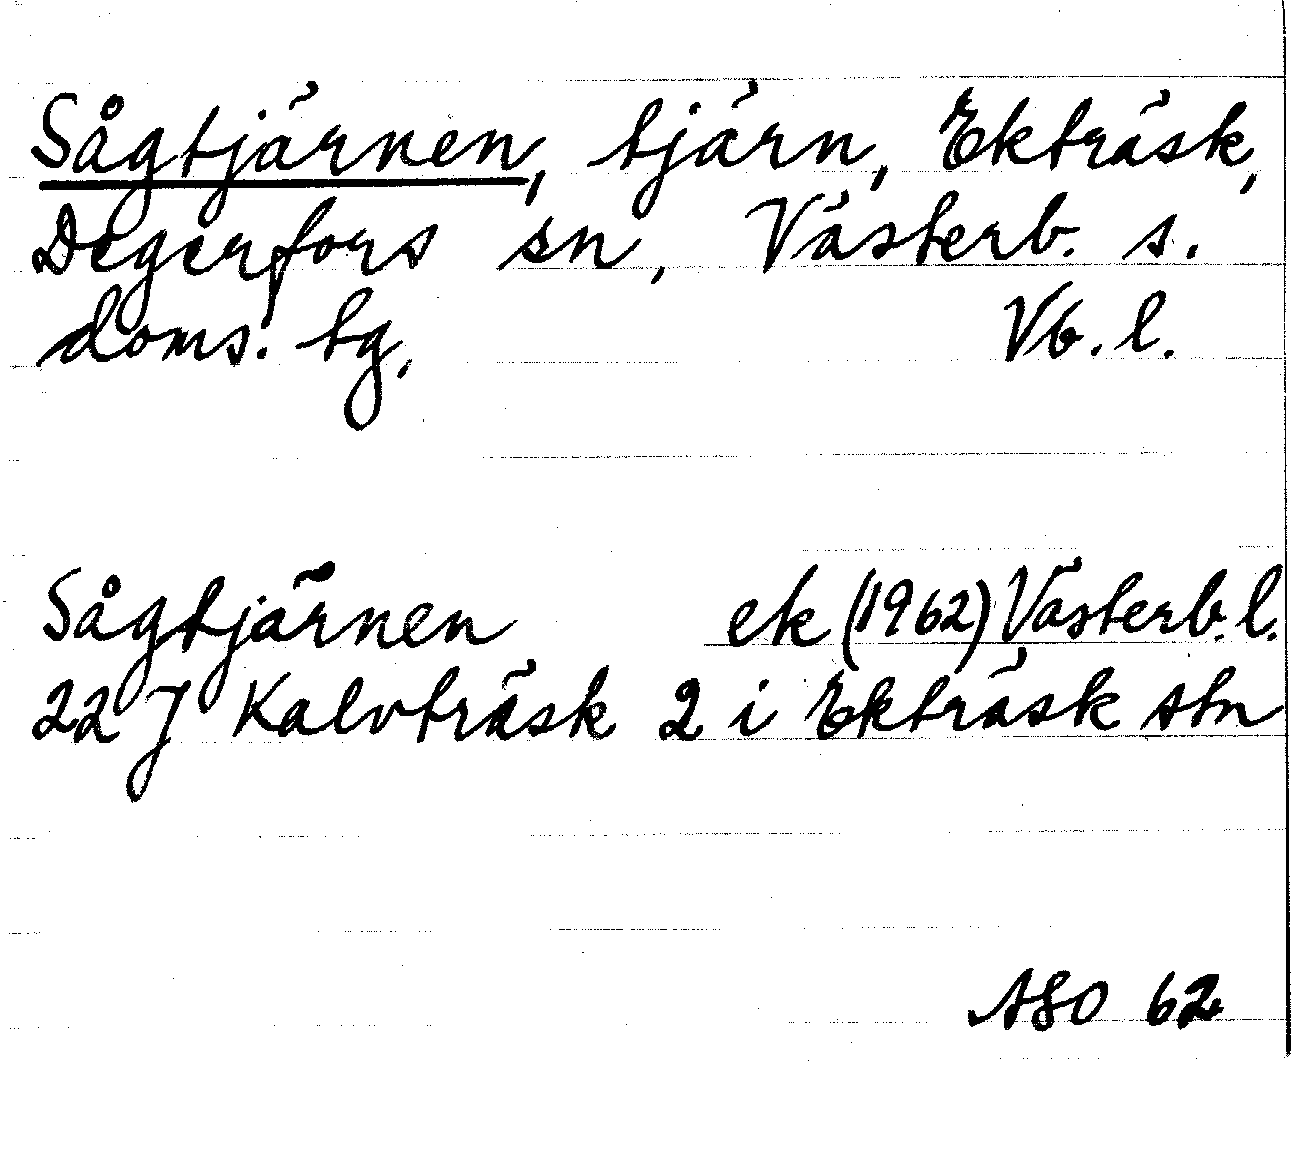 Sågtjärnen, tjärn, Ekträsk,
Degerfors sn, Västerb. s.
doms. tg, Vb. l.
Sågtjärnen ek (1962) Västerb. l.
22 J Kalvträsk 2 i Ekträsk stn
ASO 62